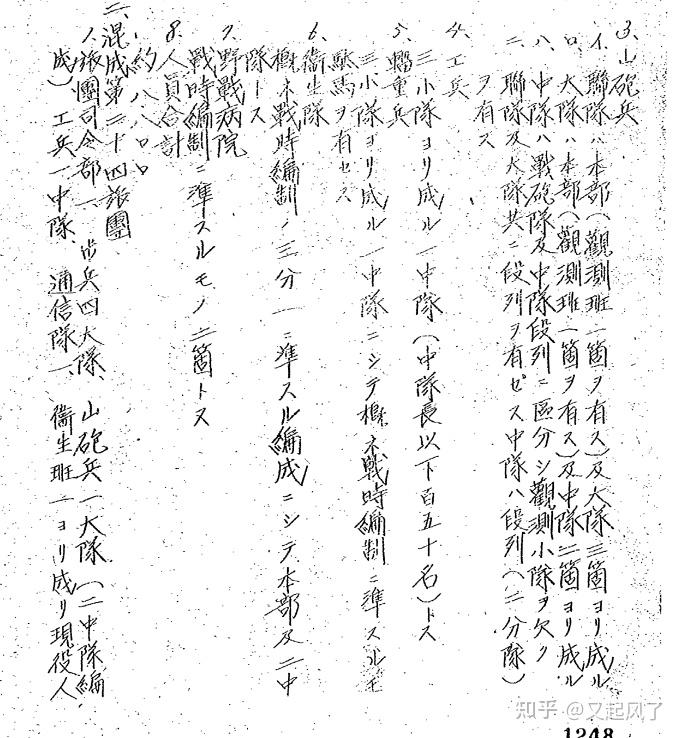 3、山砲兵
イ、聯隊ハ本部(觀測班一箇ヲ有ス)及大隊三箇ヨリ成ル
ロ、大隊ハ本部(觀測班一箇ヲ有ス)及中隊二箇ヨリ成ル
ハ、中隊ハ戰砲隊及中隊段列ニ區分シ觀測小隊ヲ欠ク
ニ、聯隊及大隊共ニ段列ヲ有セス中隊ハ段列(二分隊)
ヲ有ス
4、工兵
三小隊ヨリ成ル一中隊(中隊長以下百五十名)トス
5、輜重兵
三小隊ヨリ成ル一中隊ニシテ概ネ戰時編制ニ準スルモ
駄馬ヲ有セス
6、衞生隊
概ネ戰時編制ノ三分ノ一ニ準スル編成ニシテ本部及二中
隊トス
7、野戰病院
戰時編制ニ準スルモノ二箇トス
8、人員合計
約八八〇〇
二、混成第二十四旅團
1、旅團司令部一、步兵四大隊、山砲兵一大隊(二中隊編
成)、工兵一中隊、通信隊一、衞生班一ヨリ成リ現役人
知乎 @又起风了
1248